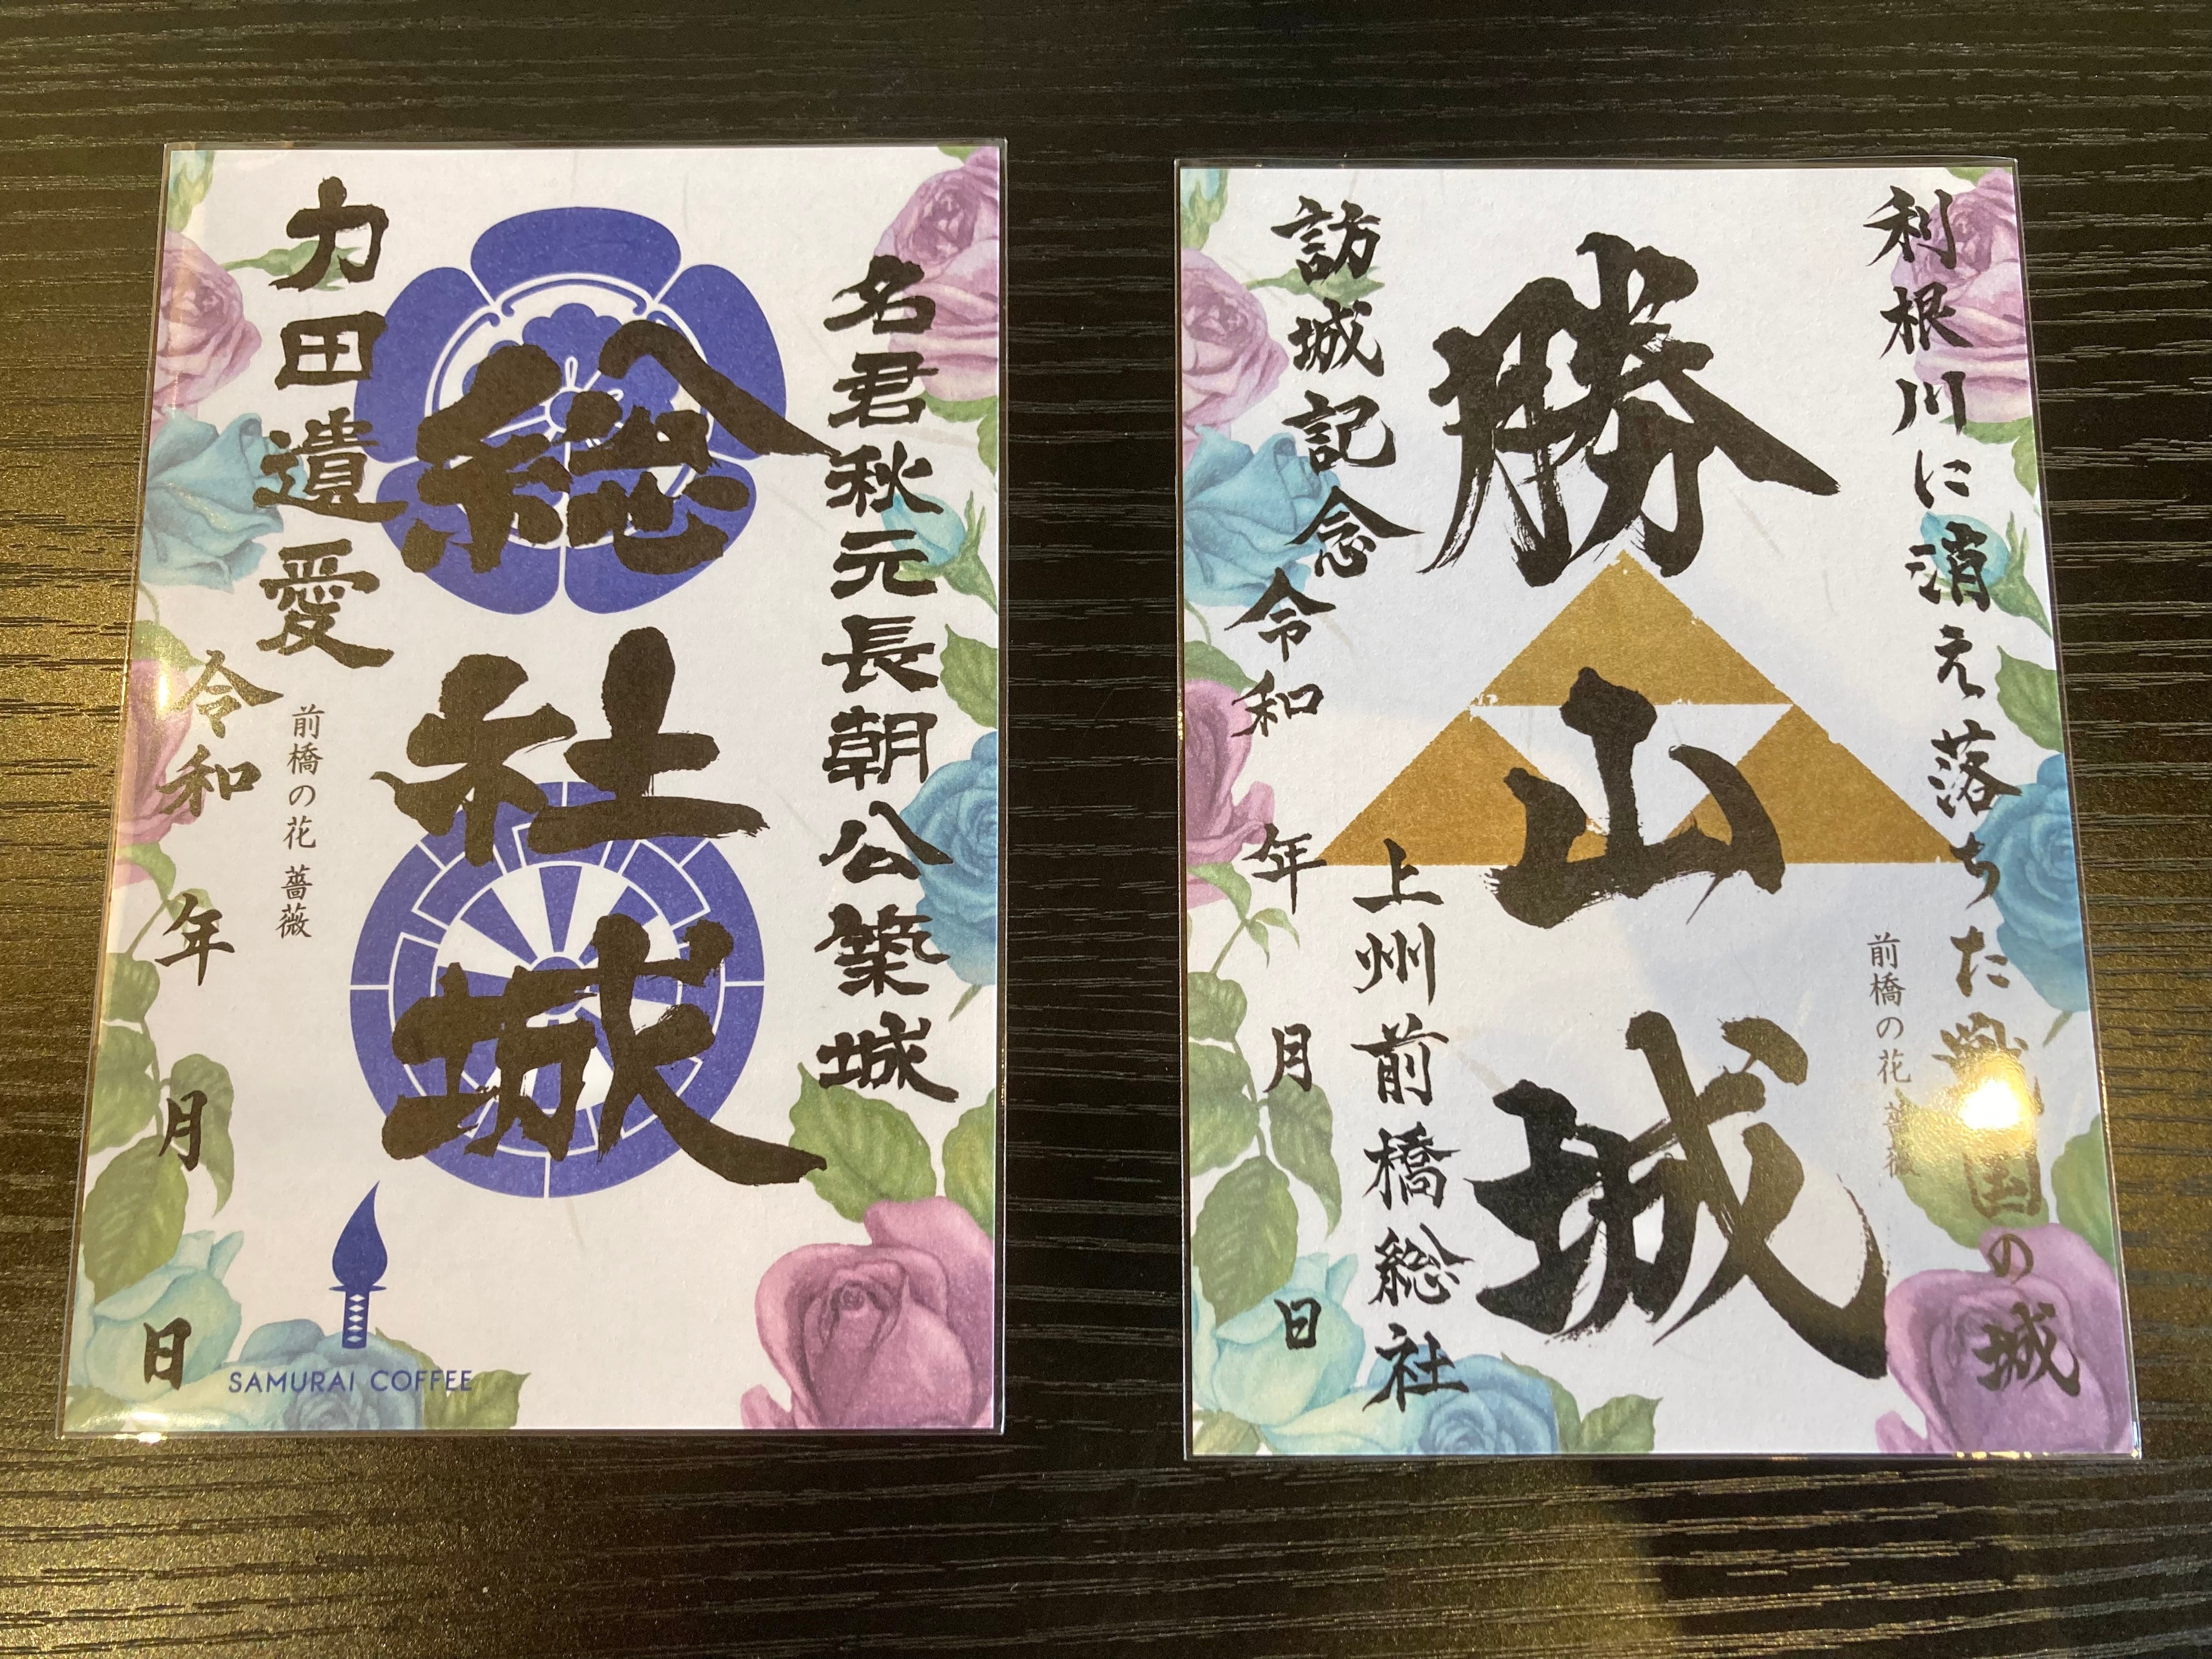 名君秋元長朝公築城
総社城
力田遺愛
前橋の花 薔薇
令和 年 月 日
SAMURAI COFFEE
利根川に消え落ちた戦国の城
前橋の花 薔薇
勝山城
上州前橋総社
訪城記念令和 年 月 日